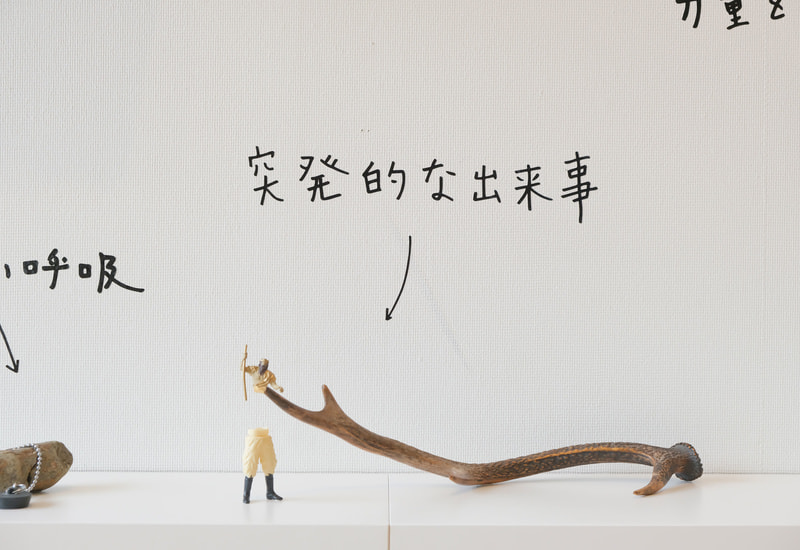 力量を
突発的な出来事
い呼吸